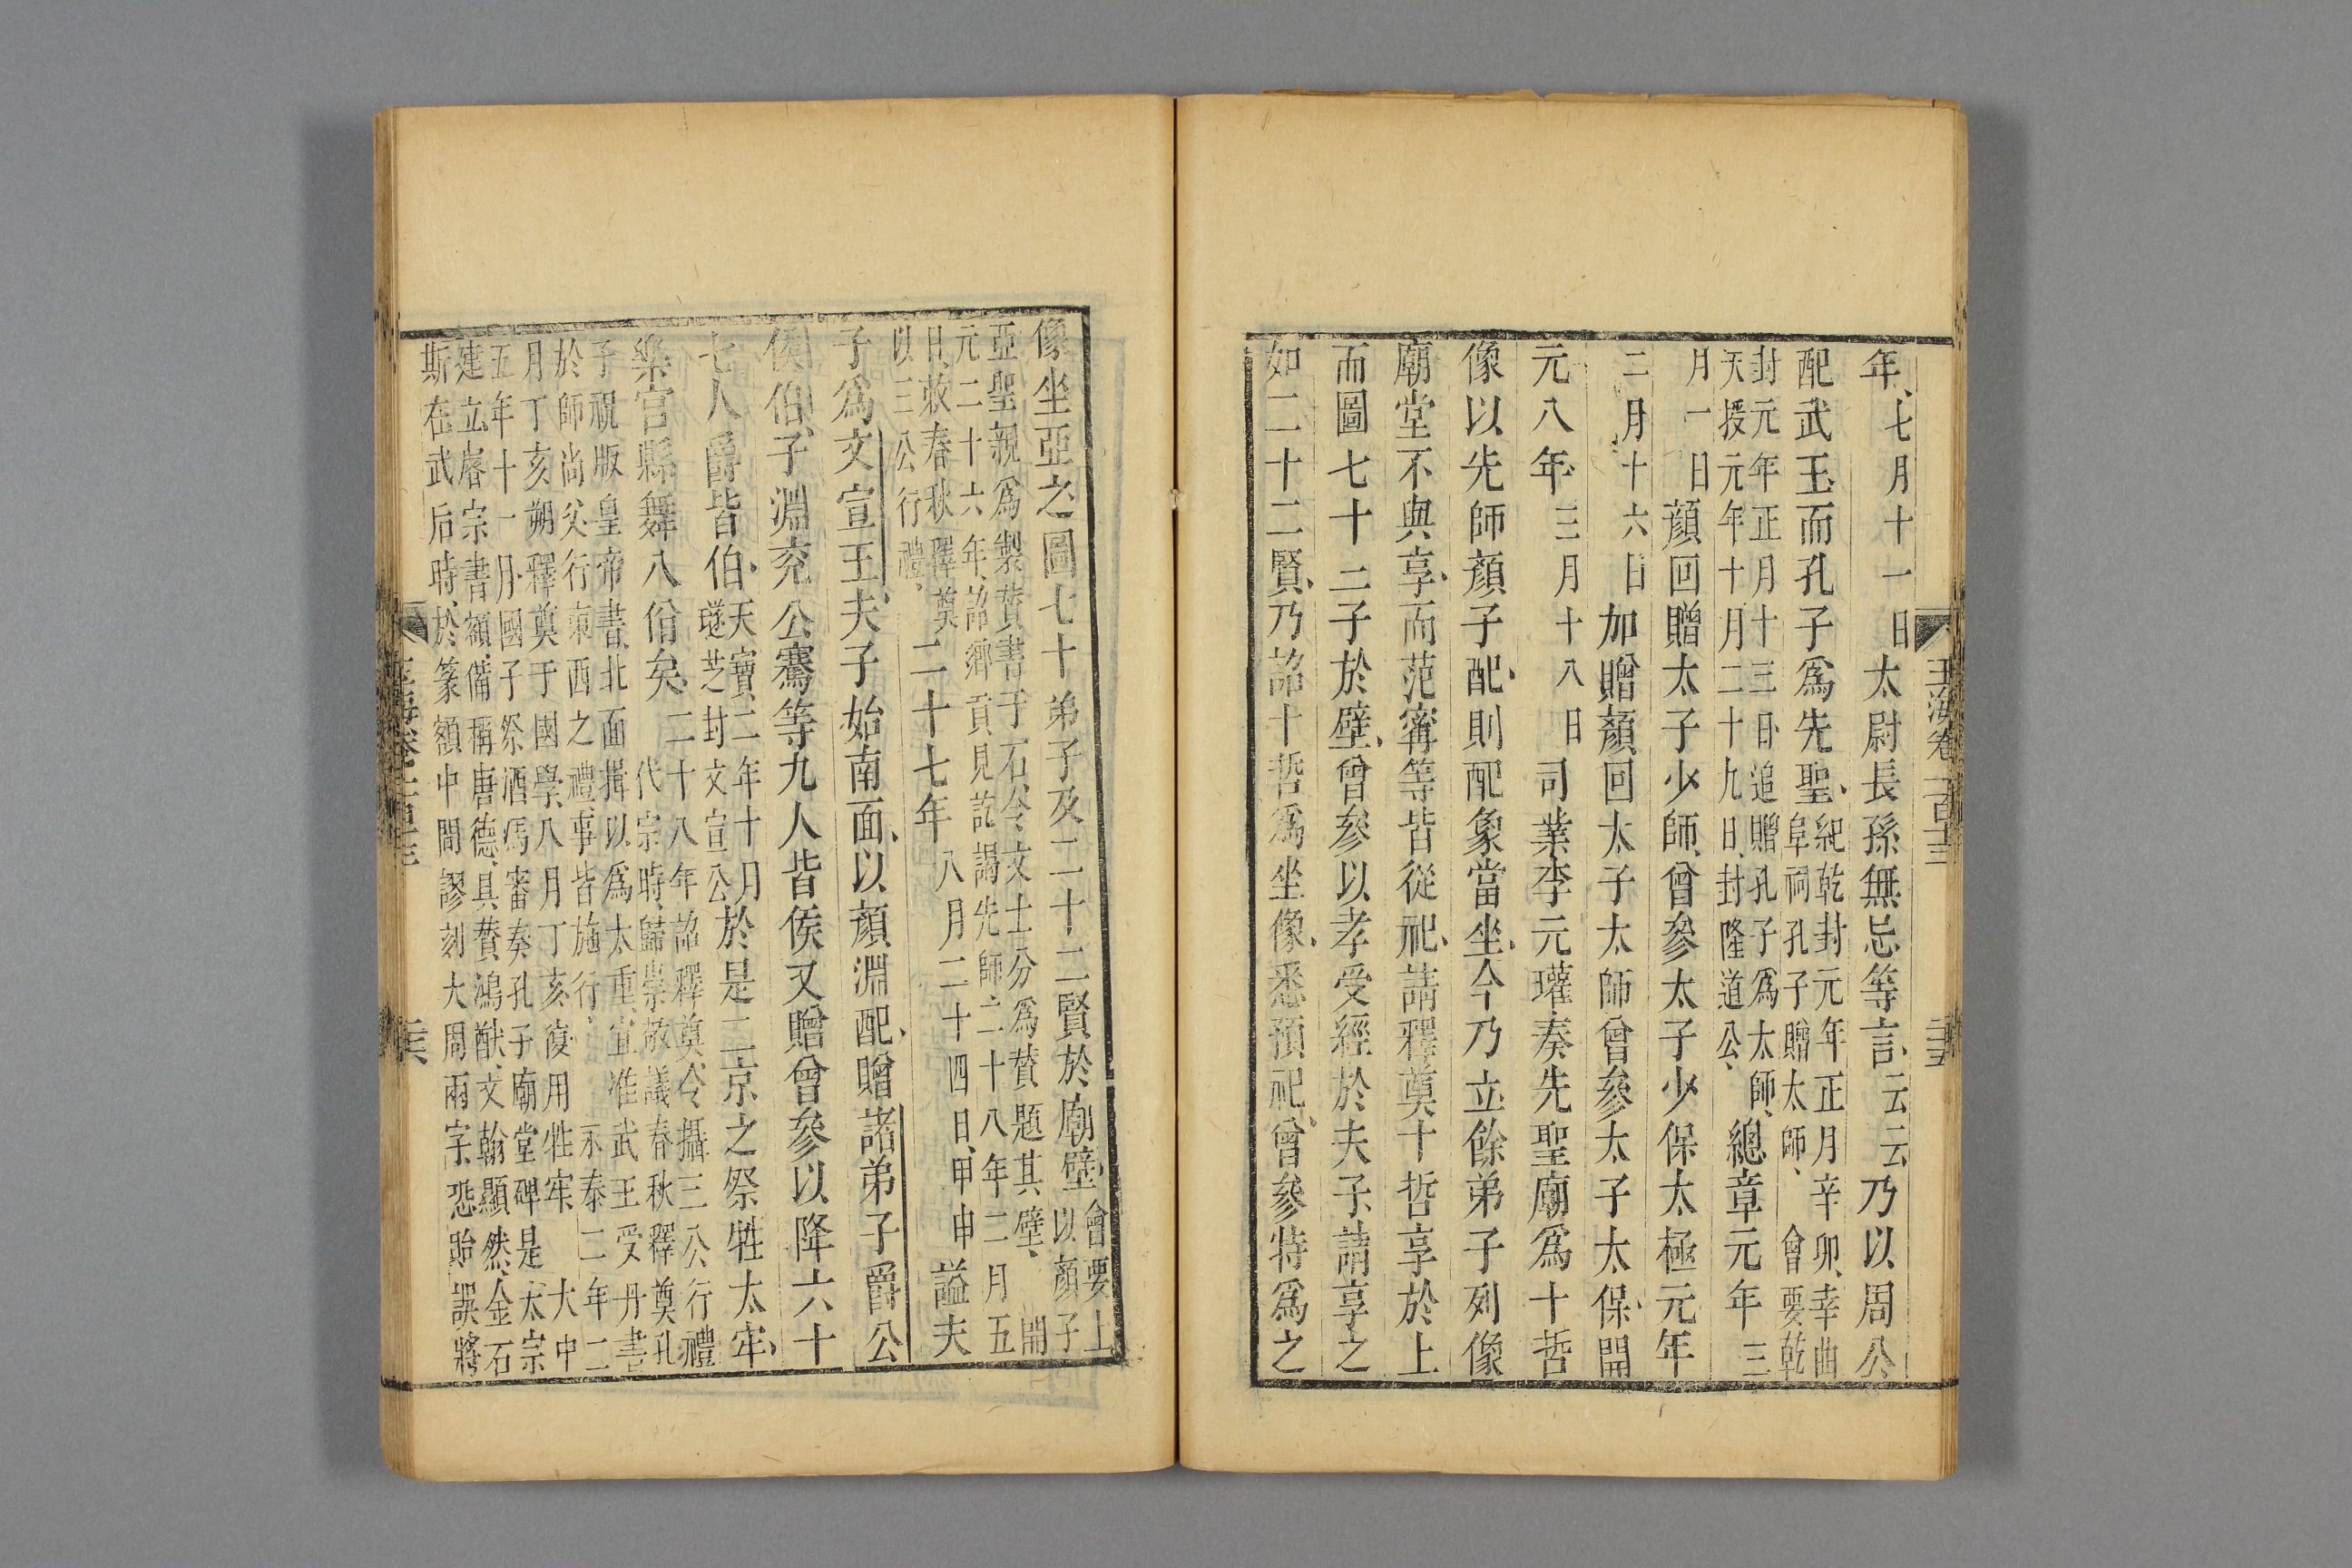 玉海卷一百十三
三五
年、七月十一日太尉長孫無忌等言、云云乃以周公
配武王、而孔子爲先聖、
紀乾封元年正月辛卯、幸曲
阜祠孔子贈太師、 會要乾
封元年正月十三日、追贈孔子爲太師、
天授元年十月二十九日、封隆道公、
總章元年 三
月一日顏回贈太子少師、曾參太子少保太極元年
二月十六日加贈顏回太子太師曾參太子太保、開
元八年、三月十八日司業李元瓘奏先聖廟爲十哲
像以先師顏子配、則配象當坐、今乃立餘弟子列像
廟堂不與享、而范甯等皆從祀、請釋奠十哲享於上
而圖七十二子於壁、曾參以孝受經於夫子、請享之
如二十二賢、乃詔十哲爲坐像、悉預祀、曾參特爲之
像坐亞之圖七十弟子及二十二賢於廟壁、
會要上
以顏子
亞聖親爲製贊書于石、令文士分爲贊題其壁、 開
元二十六年、詔鄉貢見訖謁先師二十八年二月五
日、敕春秋釋奠
以三公行禮、
二十七年八月二十四日、甲申諡夫
子爲文宣王、夫子始南面、以顏淵配、贈諸弟子爵公
侯伯、子淵兗公騫等九人皆侯又贈曾參以降六十
七人爵皆伯、
天寶二年十月
璲芝封文宣公
於是二京之祭牲太牢、
樂宮縣舞八佾矣、
二十八年詔釋奠、令攝三公行禮
代宗時、歸崇敬議春秋釋奠孔
子祝版皇帝書、北面揖以爲太重、宜准武王受丹書
於師尚父、行東西之禮、事皆施行、 永泰二年二
月丁亥朔釋奠于國學、八月丁亥、復用牲牢 大中
五年十一月、國子祭酒馮審奏孔子廟堂碑是太宗
建立、睿宗書額、備稱唐德、具贊鴻猷、文翰顯然、金石
斯在武后時、於篆額中間謬刻大周兩字、恐貽誤將